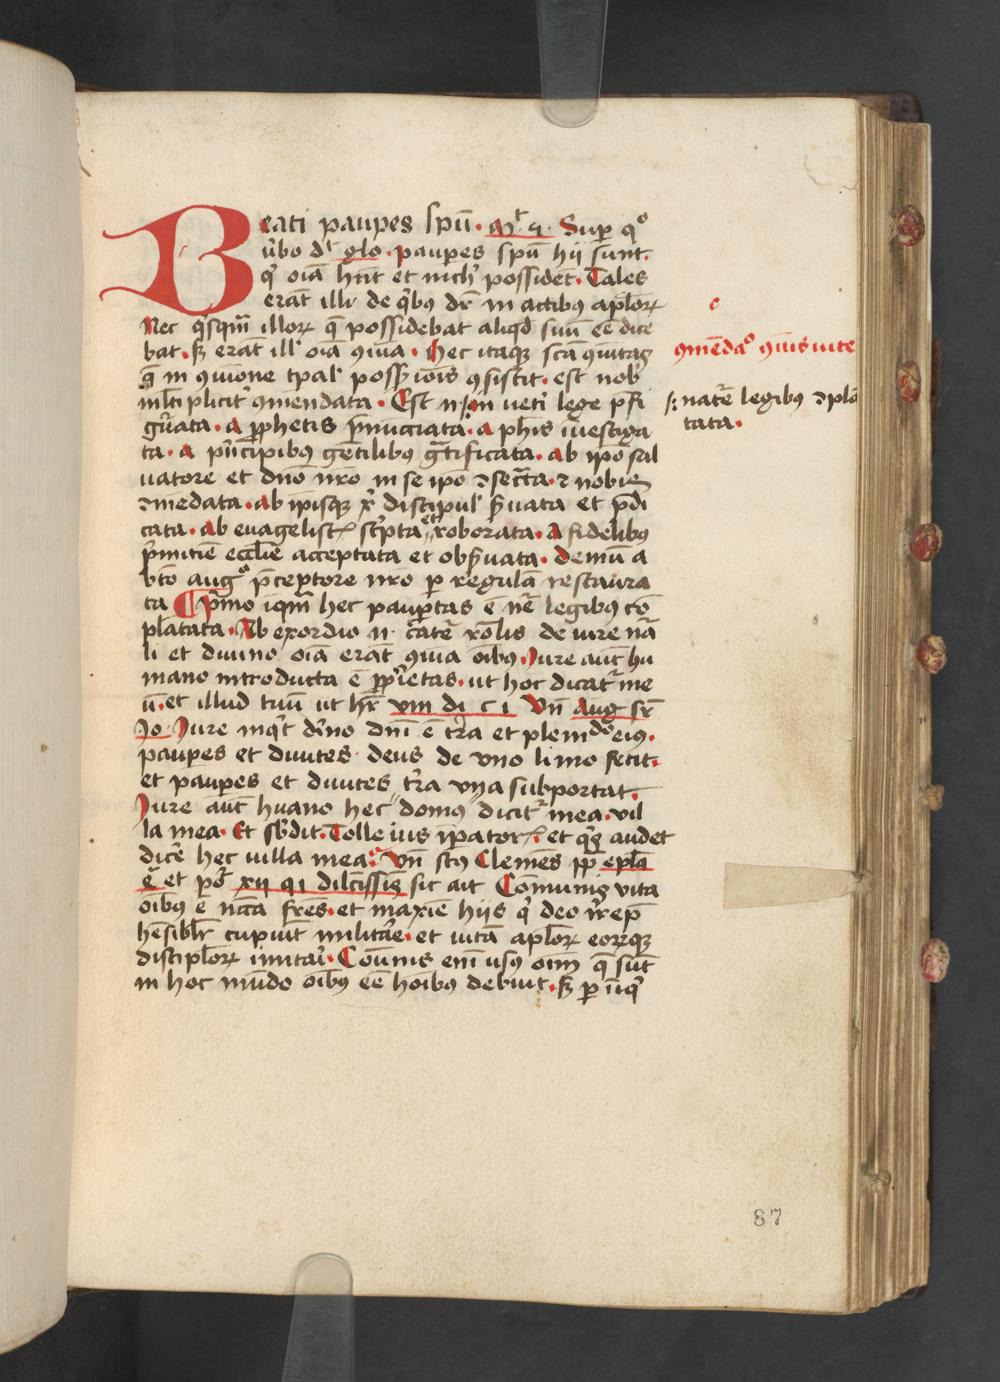 Beati paup̱es sp̄u. mͭ. 5. Sup̱ qͦ
ūbo dͭ glo. paup̱es sp̄u hij sunt.
q' oīa hn̄t et nich' possidēt. Tales
erāt illi de q'bus dr̄ in actibus ap̄lorꝝ
Nec q'sq̄m̄ illorꝝ q̄ possidebat aliq'd suū eē dice
bat. sꝫ erāt ill' oīa ꝯīua. Hec itaqꝫ scā
q̄ in ꝯuīone tp̄al' poss'iois ꝯsistit. est nob'
ml̄tiplicit' ꝯmendata. Est n. in ueti lege p̄fi
gr̄ata. a ꝓphetis p̄nūciata. a ph̄is īuestiga
ta. a p'ncipibꝰ gētilibꝰ gr̄tificata. ab ip̄o sal
uatore et dn̄o nr̄o in se ip̄o ꝯsecr̄ta. ꞇ nobis
ꝯmēdata. ab ip̄isqꝫ xp̄i discipul' s̄uata et p̄di
cata. ab euāgelist' sc'pta et roborata. A fidelibꝰ
p'mitiue ecc̄lie acceptata et obs̄uata. demū a
bt̄o augͦ p̄ceptore nr̄o p̱ regulā restaura
ta ¶ p'mo iq̄m̄ hec paup̱tas ē nr̄e legibꝰ cō
plātata. Ab exordio n. c̄atē rō̄lis de iure nā
li et diuino oīa erāt ꝯīua oībꝰ. Jure aūt hu
mano introducta ē ꝓp'ietas. ut hoc dicat' me
ū. et illud tuū ut hr̄ viii di c i Vn̄ Aug sr̄
Jo. Jure inq't d'ino dn̄i ē tr̄a et plenidͦ eius.
paup̱es et diuites deus de vno limo fecit.
et paup̱es et diuites tr̄a vna subportat.
Jure aūt huano hec domus dicit' mea. vil
la mea. Et sb'dit. Tolle ius īpatorꝝ. et q's audet
dic̄e hec uilla mea. Vn̄ sc̄s Clemēs pp̄ ep̄la
5 et pōr xii q i dilc̄issīs sic ait Cōmunis vita
oībꝰ ē nc̄c̄ā fr̄es. et maxīe hijs q' deo ir̄rep̄
hēsibl'r cupiūt militāe. et uitā ap̄lorꝝ eorūqꝫ
discip̄lorꝝ imitai. Cōunis eni usꝰ oīm q̄ sūt
in hoc mūdo oībꝰ eē hoībꝰ debuit. sꝫ p̱ iniq'
ꝯmēdaͦ ꝯīuis uite
s. natr̄e legibꝰ ꝯplā
tata.
87